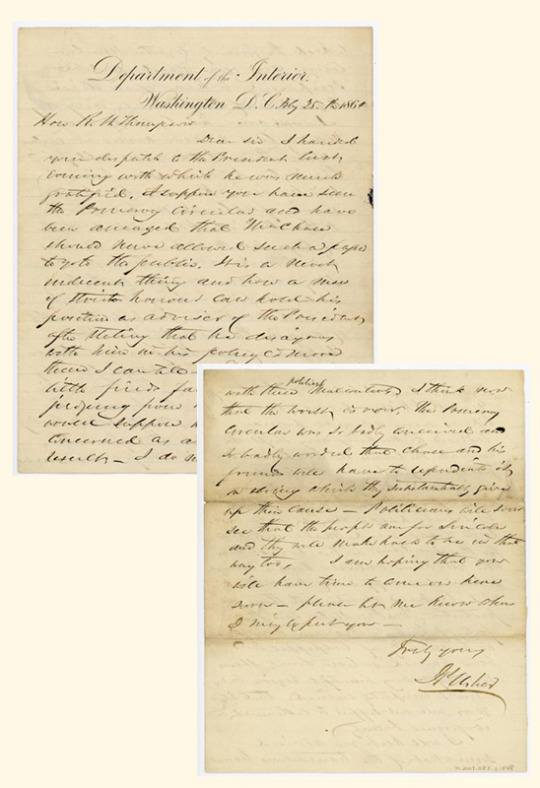 Department of the Interior.
Washington D.C. Feby 25. 1864
Hon R. W. Thompson
Dear sir I handed
your dispatch to the President last
evening with which he was much
gratified. I suppose you have seen
the Pomeroy Circular and have
been amazed that Mr Chase
should have allowed such a paper
to go to the public. It is a
indecent thing and how a man
of strict honour can hold his
position as adviser of the President
after stating that he disagrees
with him in his policy is more
than I can tell
with
judging from
would suppose
concerned as a
result — I do
with these political malcontents. I think now
that the worst is over. The Pomeroy
Circular was so badly conceived and
so badly worded that Chase and his
friends will have to repudiate it,
in doing which they substantially give
up their cause — Politicians will soon
see that the people are for Lincoln
and they will make haste to be in that
way too. I am hoping that you
will have time to come on here
soon — please let me know when
I may expect you —
Truly yours
J P Usher